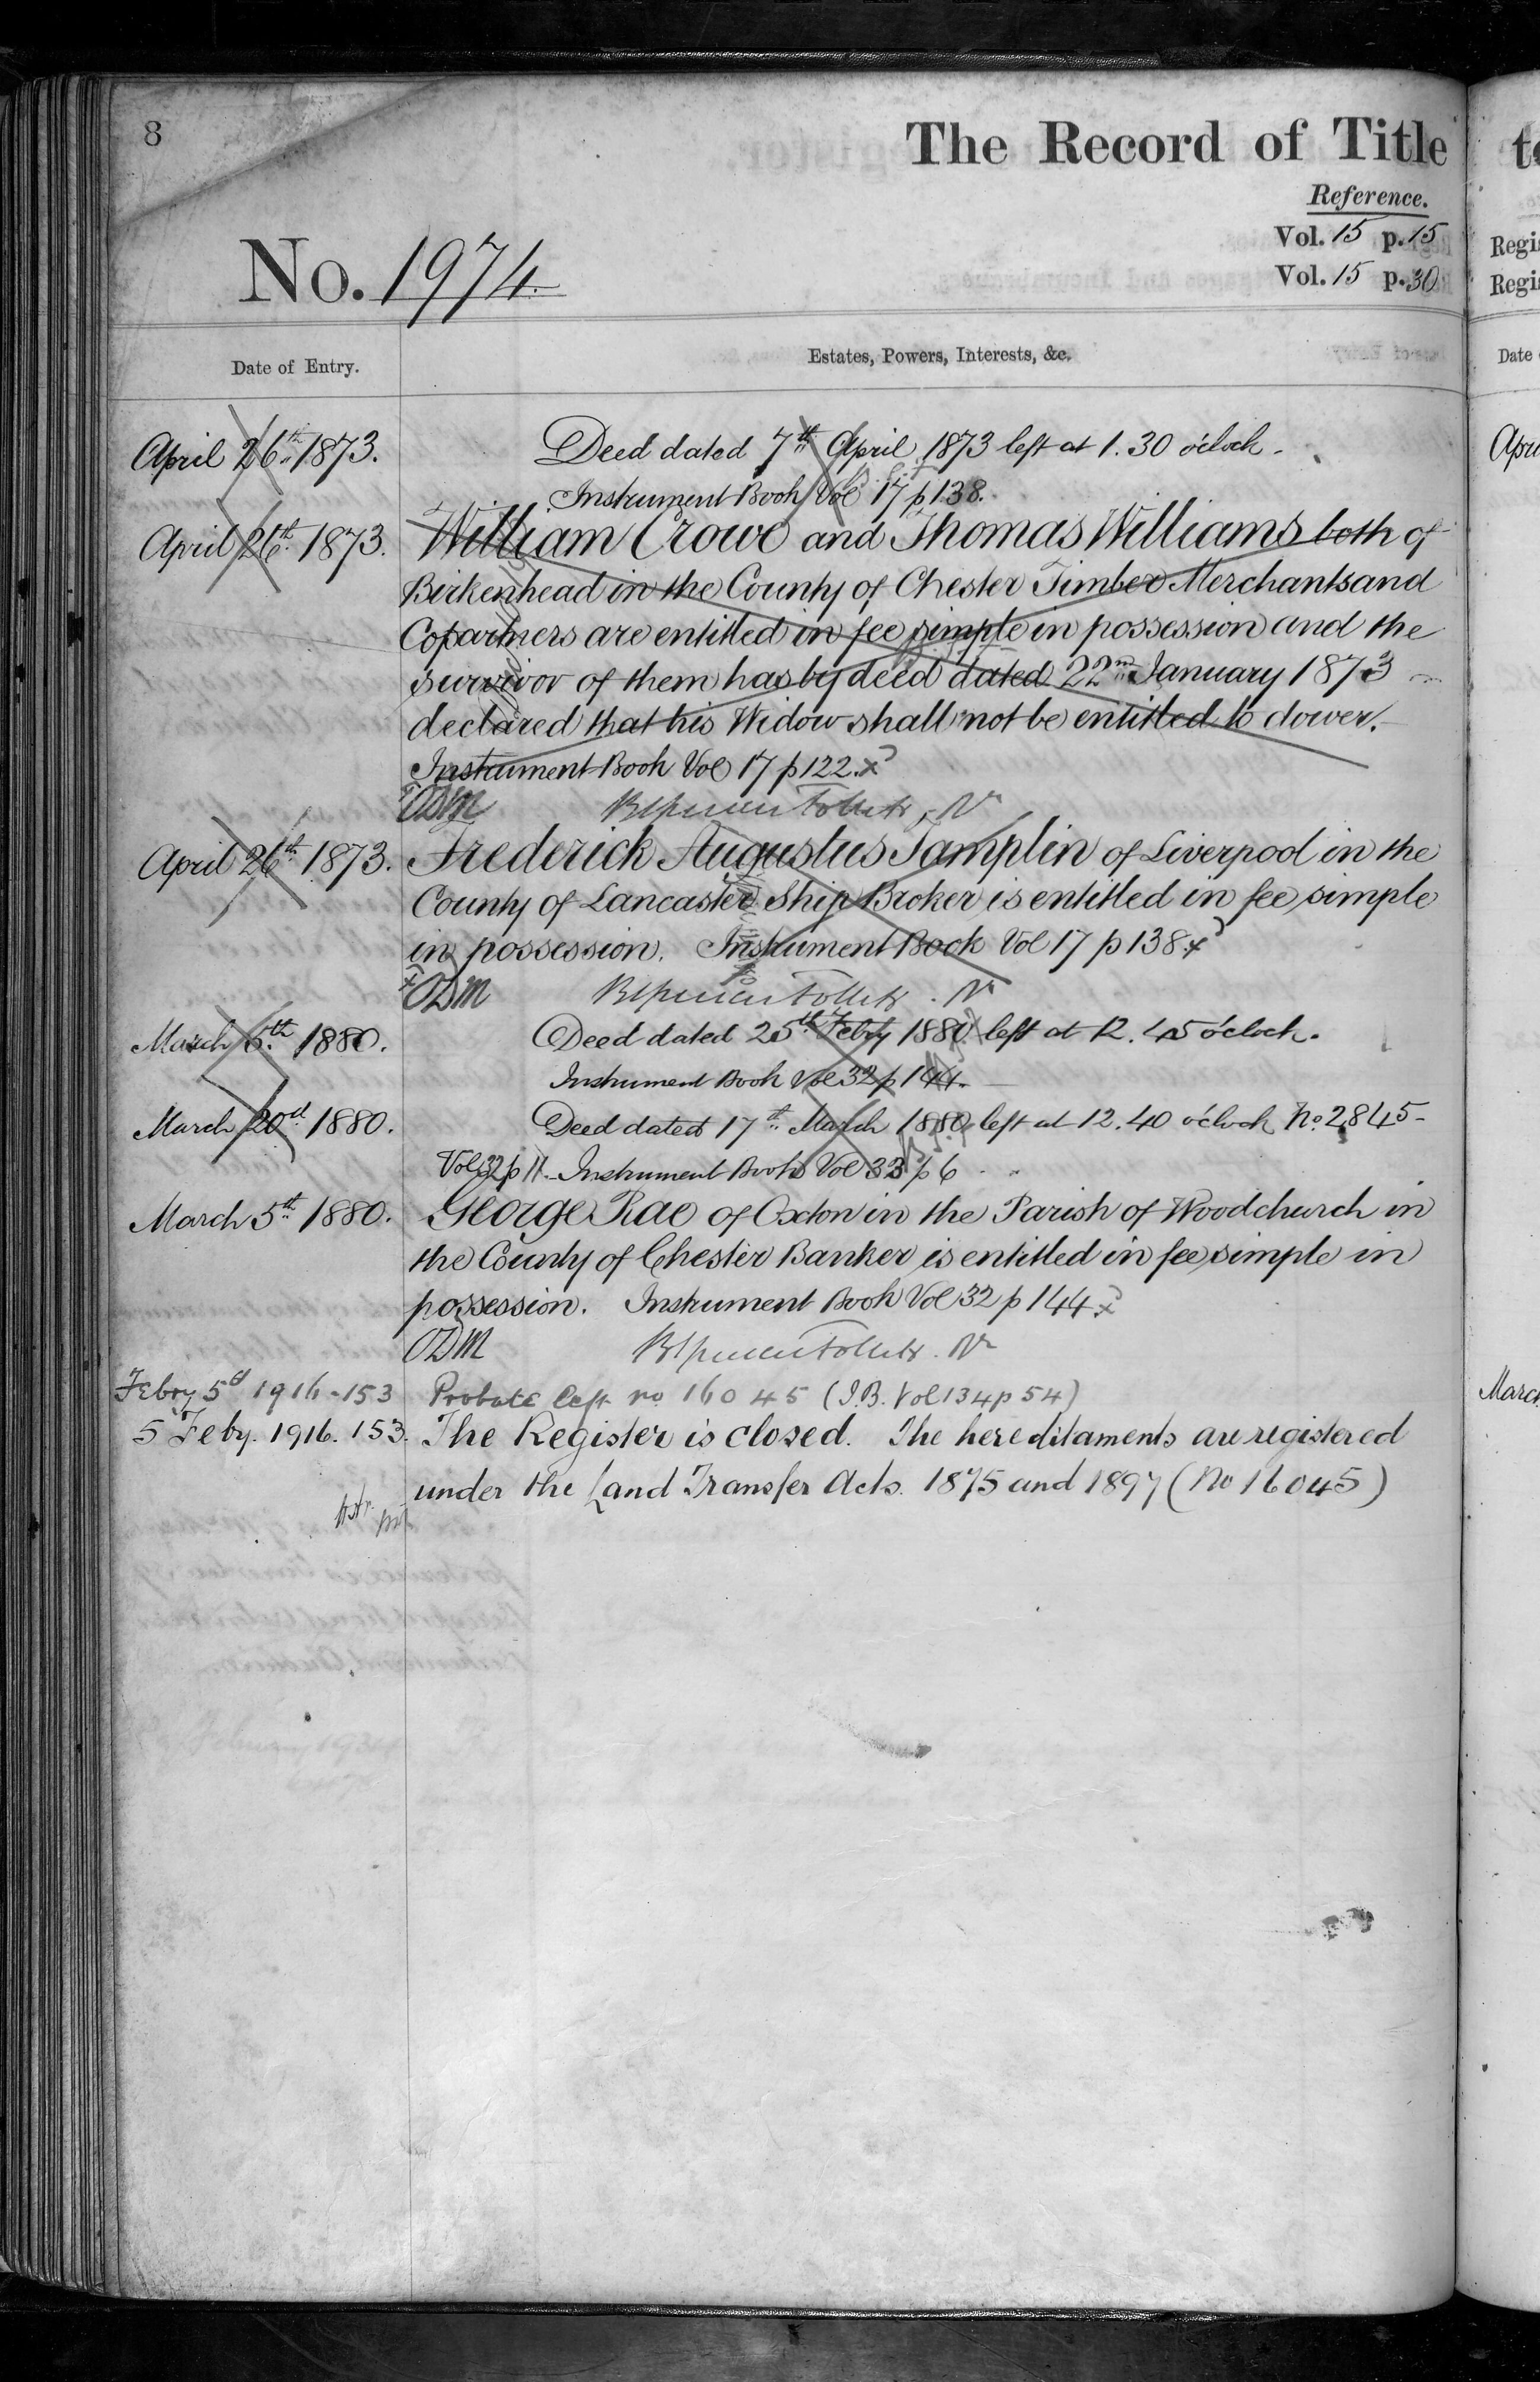 8
The Record of Title
Reference.
Vol. 15 p. 15
Vol. 15 p. 30
No. 1974.
Date of Entry.
Estates, Powers, Interests, &c.
April 26th 1873. Deed dated 7th April 1873 left at 1.30 o'clock.
Instrument Book Vol 17 p 138.
April 26th 1873. William Crowe and Thomas Williams both of
Birkenhead in the County of Chester Timber Merchants and
Copartners are entitled in fee simple in possession and the
survivor of them has by deed dated 22nd January 1873
declared that his Widow shall not be entitled to dower.
Instrument Book Vol 17 p 122.x
ODM
April 26th 1873. Frederick Augustus Tamplin of Liverpool in the
County of Lancaster Ship Broker is entitled in fee simple
in possession. Instrument Book Vol 17 p 138 x
x ODM
March 5th 1880. Deed dated 25th Febry 1880 left at 12.45 o'clock.
Instrument Book Vol 32 p 144.
March 20th 1880. Deed dated 17th March 1880 left at 12.40 o'clock No. 2845
Vol 32 p 11. Instrument Book Vol 33 p 6
March 5th 1880. George Rae of Oxton in the Parish of Woodchurch in
the County of Chester Banker is entitled in fee simple in
possession. Instrument Book Vol 32 p 144 x
ODM
Febry 5th 1916 - 153 Probate left no 16045 (I.B. Vol 134 p 54)
5 Feby. 1916. 153. The Register is closed. The hereditaments are registered
under the Land Transfer Acts. 1875 and 1897 (No 16045)
to
Regis
Regis
Date
Apri
March